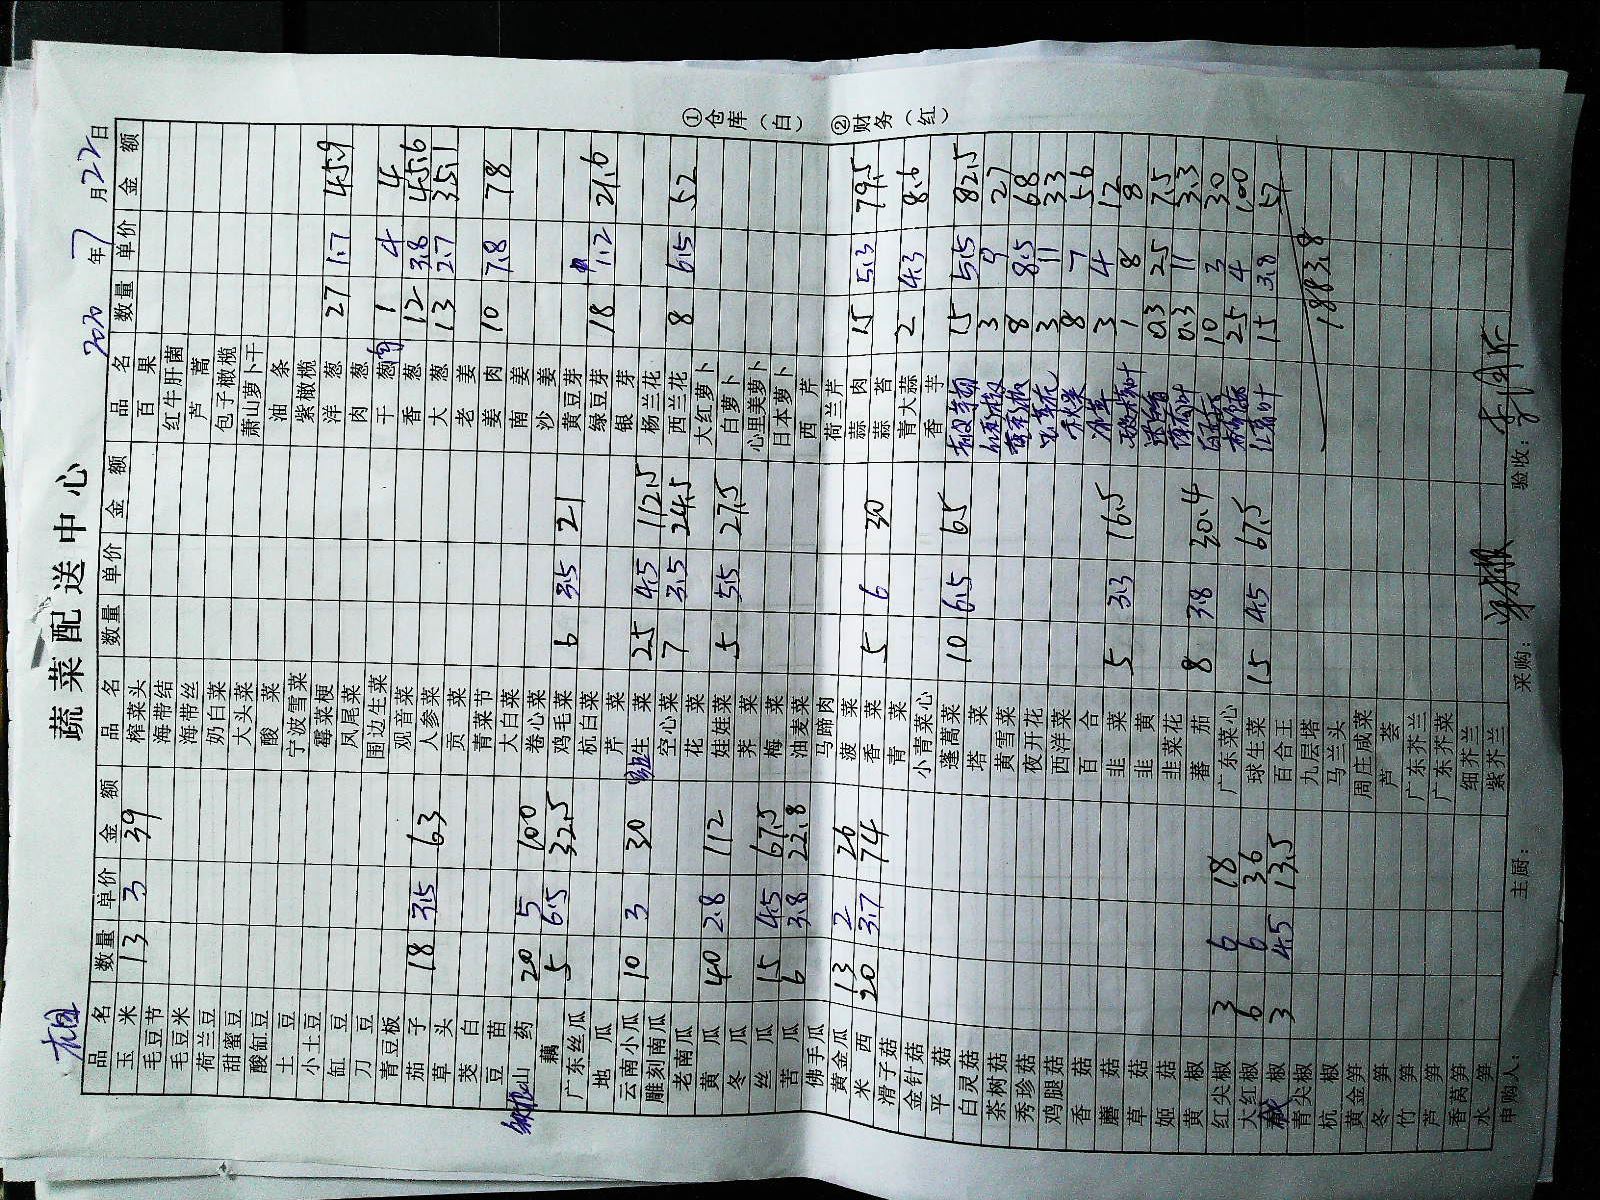 蔬菜配送中心
2020 年 7 月 22 日
品名 数量 单价 金额 品名 数量 单价 金额 品名 数量 单价 金额
玉米 13 3 39 榨菜头 百果
毛豆节 海带结 红牛肝菌
毛豆米 海带丝 芦蒿
荷兰豆 奶白菜 包子橄榄
甜蜜豆 大头菜 萧山萝卜干
酸缸豆 酸菜 油条
土豆 宁波雪菜 紫橄榄
小土豆 霉菜梗 洋葱 27 1.7 45.9
缸豆 凤尾菜 肉葱
刀豆 围边生菜 干葱 1 4 4
青豆板 观音菜 香葱 12 3.8 45.6
茄子 18 3.5 63 人参菜 大葱 13 2.7 35.1
草头 贡菜 老姜
茭白 青菜节 姜肉 10 7.8 78
豆苗 大白菜 南姜
山药 20 5 100 卷心菜 沙姜
藕 5 6.5 32.5 鸡毛菜 6 3.5 21 黄豆芽
广东丝瓜 杭白菜 绿豆芽 18 1.2 21.6
地瓜 芹菜 银芽
云南小瓜 10 3 30 生菜 25 4.5 112.5 杨兰花
雕刻南瓜 空心菜 7 3.5 24.5 西兰花 8 6.5 52
老南瓜 花菜 大红萝卜
黄瓜 40 2.8 112 娃娃菜 5 5.5 27.5 白萝卜
冬瓜 荠菜 心里美萝卜
丝瓜 15 4.5 67.5 梅菜 日本萝卜
苦瓜 6 3.8 22.8 油麦菜 西芹
佛手瓜 马蹄肉 荷兰芹
黄金瓜 13 2 26 菠菜 蒜肉 15 5.3 79.5
米西 20 3.7 74 香菜 5 6 30 蒜苔
滑子菇 青菜 青大蒜 2 4.3 8.6
金针菇 小青菜心 香芋
平菇 蓬蒿菜 10 6.5 65 15 5.5 82.5
白灵菇 塔菜 3 9 27
茶树菇 黄雪菜 8 8.5 68
秀珍菇 夜开花 3 11 33
鸡腿菇 西洋菜 8 7 56
香菇 百合 冰草 3 4 12
蘑菇 韭菜 5 3.3 16.5 1 8 8
草菇 韭黄 0.3 25 7.5
姬菇 韭菜花 0.3 11 3.3
黄椒 蕃茄 8 3.8 30.4 10 3 30
红尖椒 3 6 18 广东菜心 25 4 100
大红椒 6 6 36 球生菜 15 4.5 67.5 15 3.8 57
椒 3 4.5 13.5 百合王
青尖椒 九层塔 1883.8
杭椒 马兰头
黄金笋 周庄咸菜
冬笋 芦荟
竹笋 广东芥兰
芦笋 广东芥菜
香莴笋 细芥兰
水笋 紫芥兰
申购人： 主厨： 采购： 验收：
①仓库（白） ②财务（红）